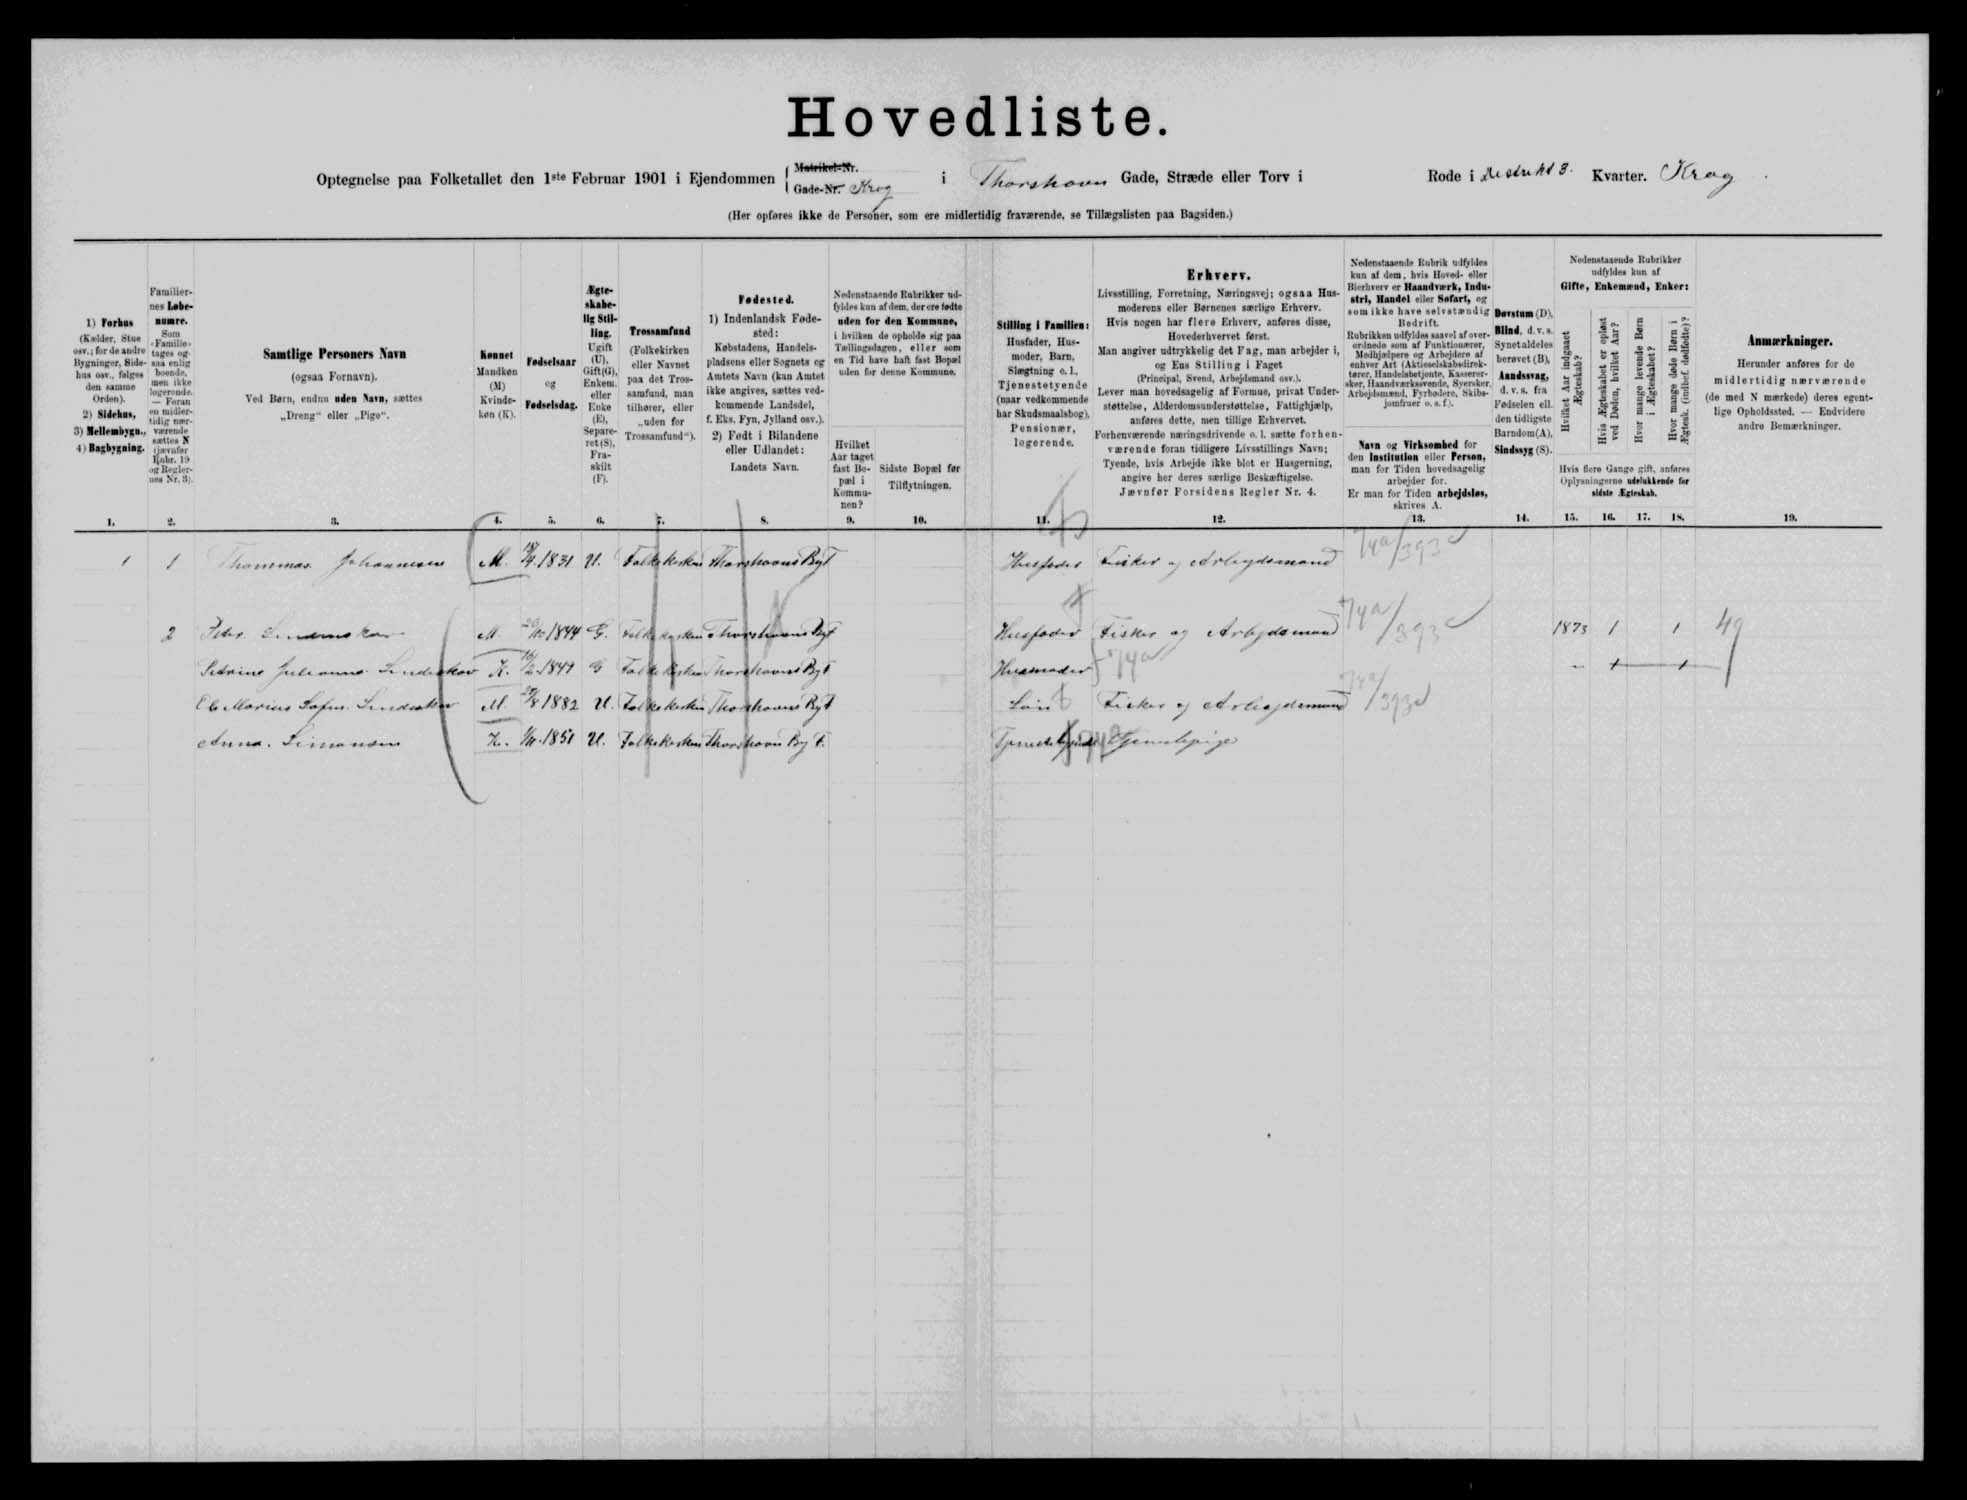 Hovedliste.
Optegnelse paa Folketallet den 1ste Februar 1901 i Ejendommen { Matrikel-Nr. Gade-Nr. Krog i Thorshavn Gade, Stræde eller Torv i Rode i Distrikt 3. Kvarter. Krog
(Her opføres ikke de Personer, som ere midlertidig fraværende, se Tillægslisten paa Bagsiden.)
1) Forhus
(Kælder, Stue
osv.; for de andre
Bygninger, Side-
hus osv., følges
den samme
Orden).
2) Sidehus,
3) Mellembygn.,
4) Bagbygning.
Familier-
nes Løbe-
numre.
Som
«Familie»
tages og-
saa enlig
boende,
men ikke
logerende.
— Foran
en midler-
tidig nær-
værende
sættes N
(jævnfør
Rubr. 19
og Regler-
nes Nr. 3).
Samtlige Personers Navn
(ogsaa Fornavn).
Ved Børn, endnu uden Navn, sættes
„Dreng“ eller „Pige“.
Kønnet
Mandkøn
(M)
Kvinde-
køn (K).
Fødselsaar
og
Fødselsdag.
Ægte-
skabe-
lig Stil-
ling.
Ugift
(U),
Gift(G),
Enkem.
eller
Enke
(E),
Separe-
ret (S),
Fra-
skilt
(F).
Trossamfund
(Folkekirken
eller Navnet
paa det Tros-
samfund, man
tilhører, eller
„uden for
Trossamfund“).
Fødested.
1) Indenlandsk Føde-
sted:
Købstadens, Handels-
pladsens eller Sognets og
Amtets Navn (kan Amtet
ikke angives, sættes ved-
kommende Landsdel,
f. Eks. Fyn, Jylland osv.).
2) Født i Bilandene
eller Udlandet:
Landets Navn.
Nedenstaaende Rubrikker ud-
fyldes kun af dem, der ere fødte
uden for den Kommune,
i hvilken de opholde sig paa
Tællingsdagen, eller som
en Tid have haft fast Bopæl
uden for denne Kommune.
Hvilket
Aar taget
fast Bo-
pæl i
Kommu-
nen?
Sidste Bopæl før
Tilflytningen.
Stilling i Familien:
Husfader, Hus-
moder, Barn,
Slægtning o. l.,
Tjenestetyende
(naar vedkommende
har Skudsmaalsbog),
Pensionær,
logerende.
Erhverv.
Livsstilling, Forretning, Næringsvej; ogsaa Hus-
moderens eller Børnenes særlige Erhverv.
Hvis nogen har flere Erhverv, anføres disse,
Hovederhvervet først.
Man angiver udtrykkelig det Fag, man arbejder i,
og Ens Stilling i Faget
(Principal, Svend, Arbejdsmand osv.).
Lever man hovedsagelig af Formue, privat Under-
støttelse, Alderdomsunderstøttelse, Fattighjælp,
anføres dette, men tillige Erhvervet.
Forhenværende næringsdrivende o. l. sætte forhen-
værende foran tidligere Livsstillings Navn;
Tyende, hvis Arbejde ikke blot er Husgerning,
angive her deres særlige Beskæftigelse.
Jævnfør Forsidens Regler Nr. 4.
Nedenstaaende Rubrik udfyldes
kun af dem, hvis Hoved- eller
Bierhverv er Haandværk, Indu-
stri, Handel eller Søfart, og
som ikke have selvstændig
Bedrift.
Rubrikken udfyldes saavel af over-
ordnede som af Funktionærer,
Medhjælpere og Arbejdere af
enhver Art (Aktieselskabsdirek-
tører, Handelsbetjente, Kasserer-
sker, Haandværkssvende, Syersker,
Arbejdsmænd, Fyrbødere, Skibs-
jomfruer o. s. f.).
Navn og Virksomhed for
den Institution eller Person,
man for Tiden hovedsagelig
arbejder for.
Er man for Tiden arbejdsløs,
skrives A.
Døvstum (D),
Blind, d. v. s.
Synet aldeles
berøvet (B),
Aandssvag,
d. v. s. fra
Fødselen ell.
den tidligste
Barndom (A),
Sindssyg (S).
Nedenstaaende Rubrikker
udfyldes kun af
Gifte, Enkemænd, Enker:
Hvilket Aar indgaaet
Ægteskab?
Hvis Ægteskabet er opløst
ved Døden, hvilket Aar?
Hvor mange levende Børn
i Ægteskabet?
Hvor mange døde Børn i
Ægtesk. (indbef. dødfødte)?
Hvis flere Gange gift, anføres
Oplysningerne udelukkende for
sidste Ægteskab.
Anmærkninger.
Herunder anføres for de
midlertidig nærværende
(de med N mærkede) deres egent-
lige Opholdssted. — Endvidere
andre Bemærkninger.
1. 2. 3. 4. 5. 6. 7. 8. 9. 10. 11. 12. 13. 14. 15. 16. 17. 18. 19.
1 1 Thommas Johannesen M. 18/4 1831 U. Folkekirken Thorshavns By F Husfader Fisker og Arbejdsmand 74a/393
2 Peter Lindenskov M. 1844 G. Folkekirken Thorshavns By F Husfader Fisker og Arbejdsmand 74a/393 1873 1 1 49
Petrine Julianne Lindenskov K. 1849 G Folkekirken Thorshavns By F Husmoder 74a
Marius Lindenskov M. 1882 U. Folkekirken Thorshavns By F Søn Fisker og Arbejdsmand 74a/393
Anna Simonsen K. 1851 U. Folkekirken Thorshavns By F. Tjenestetyende Tjenestepige